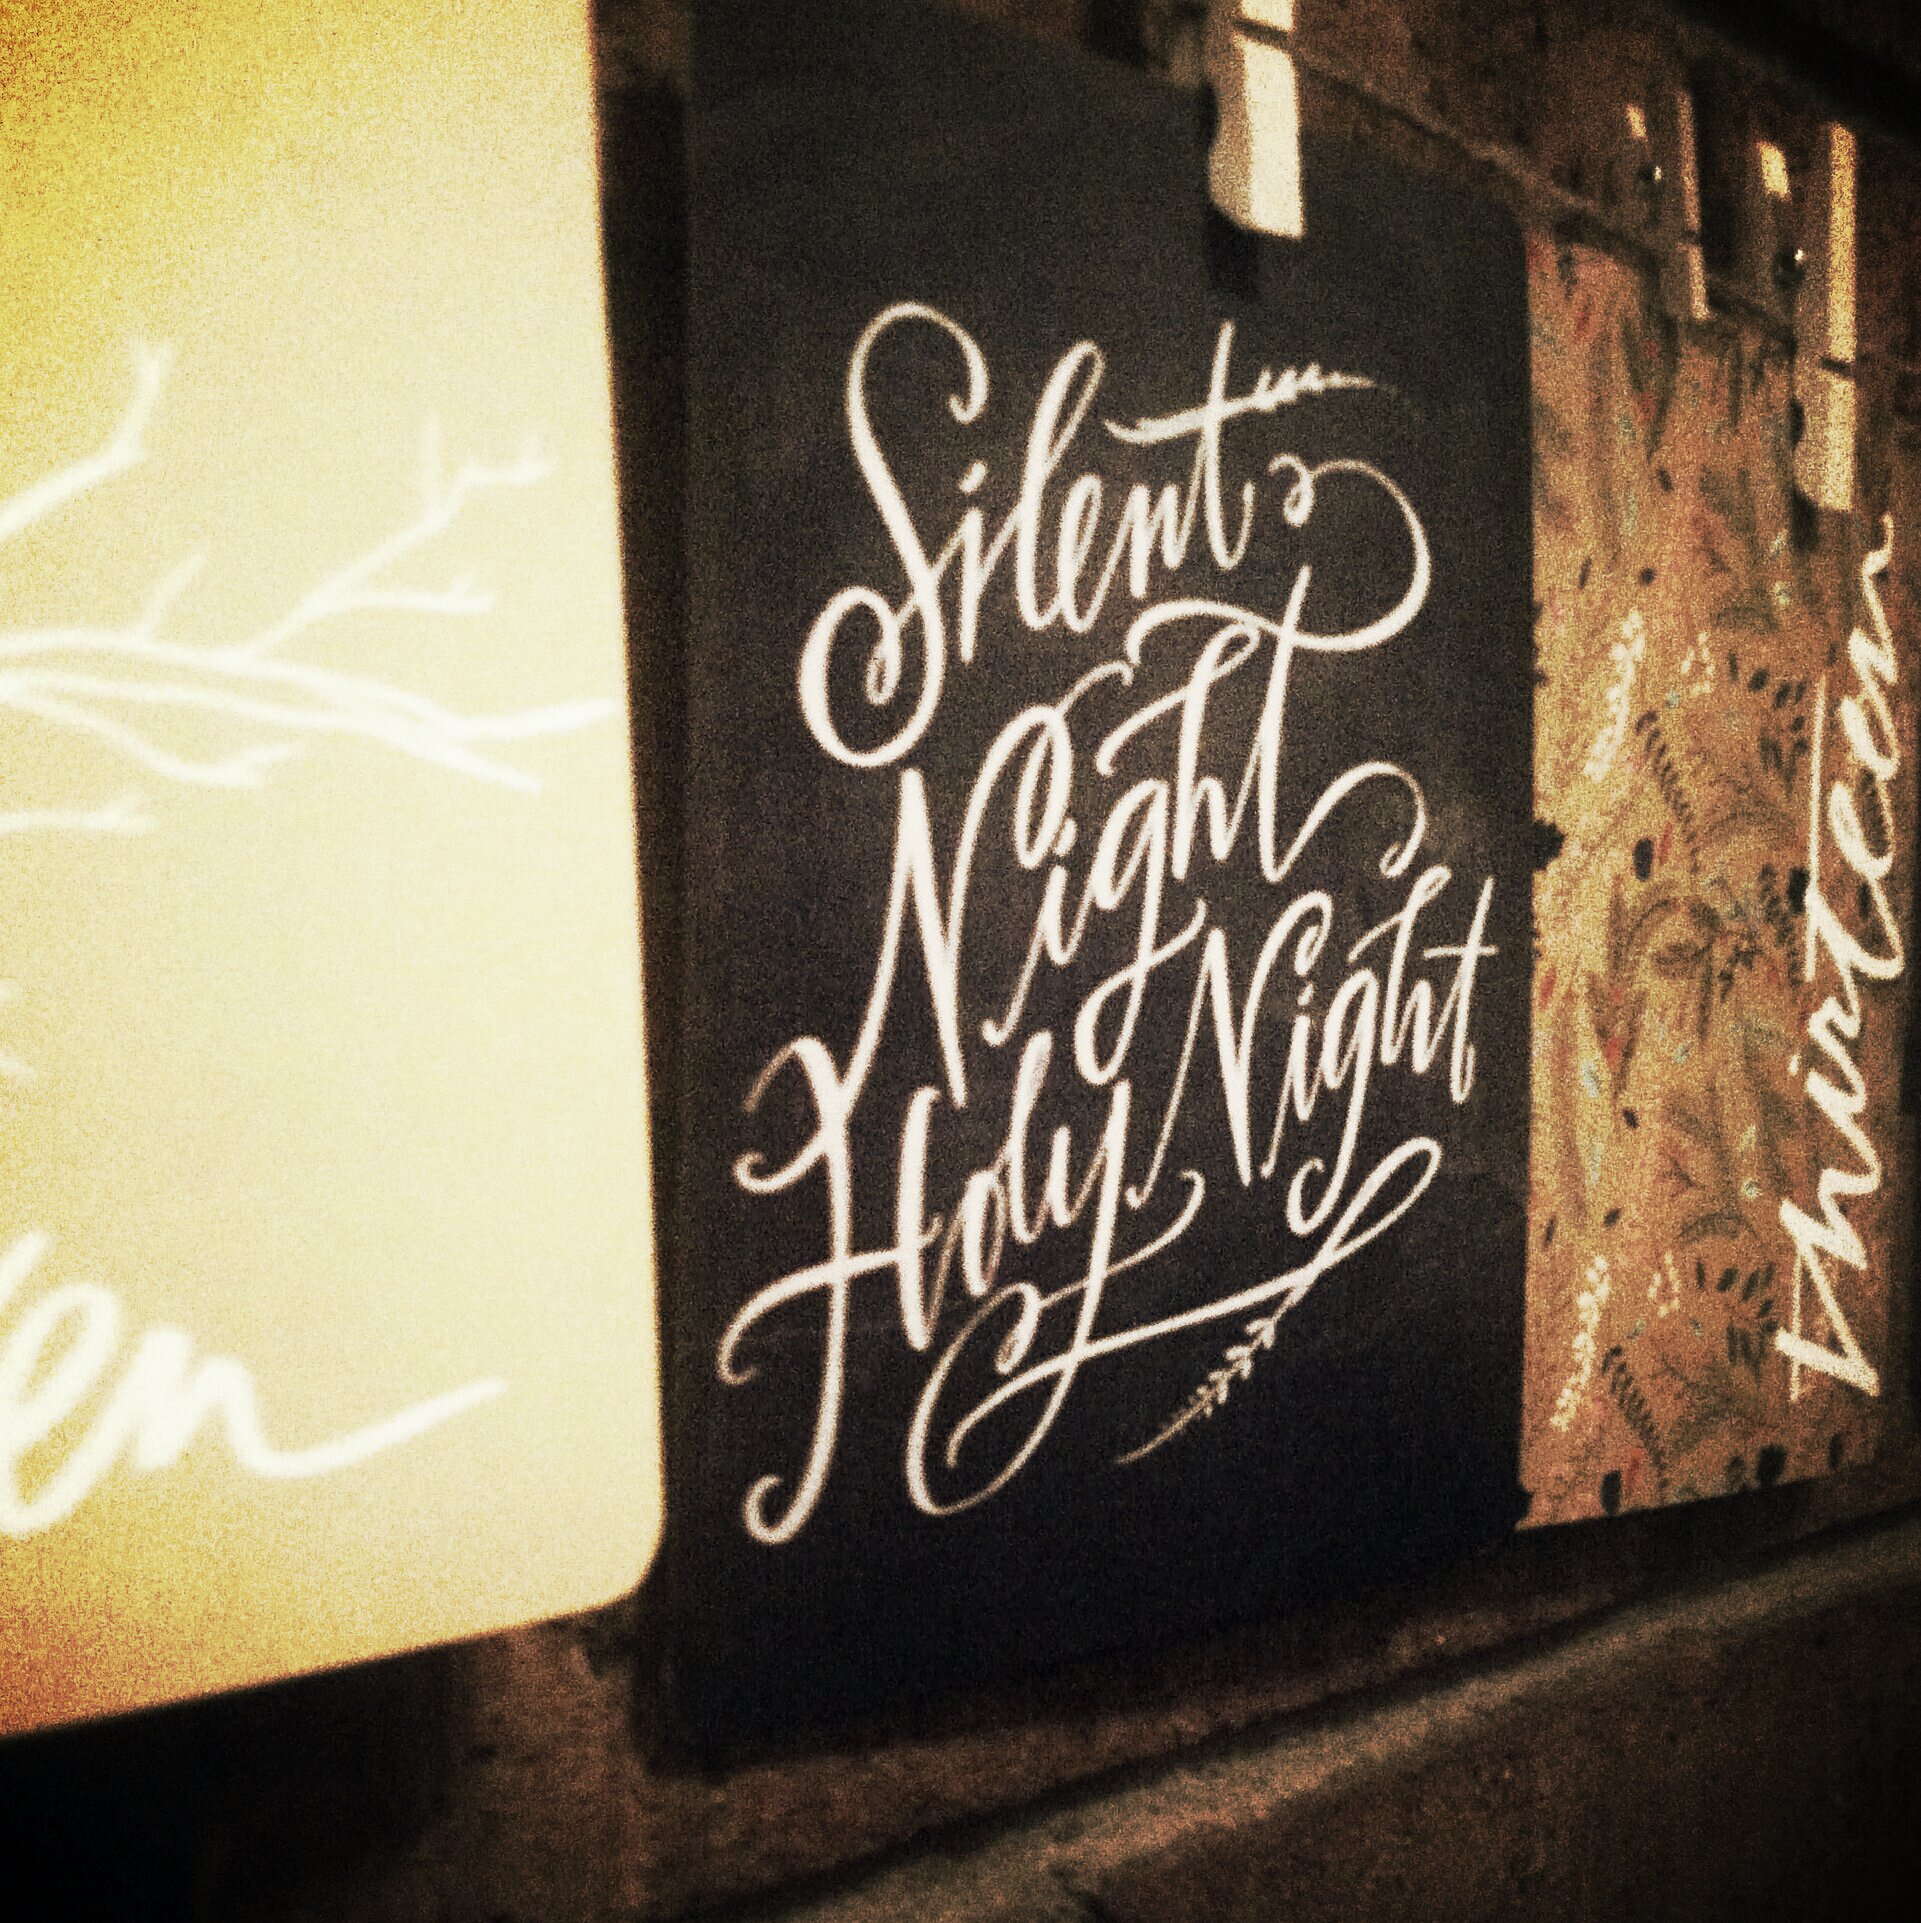 Silent
Night
Holy Night
thirteen